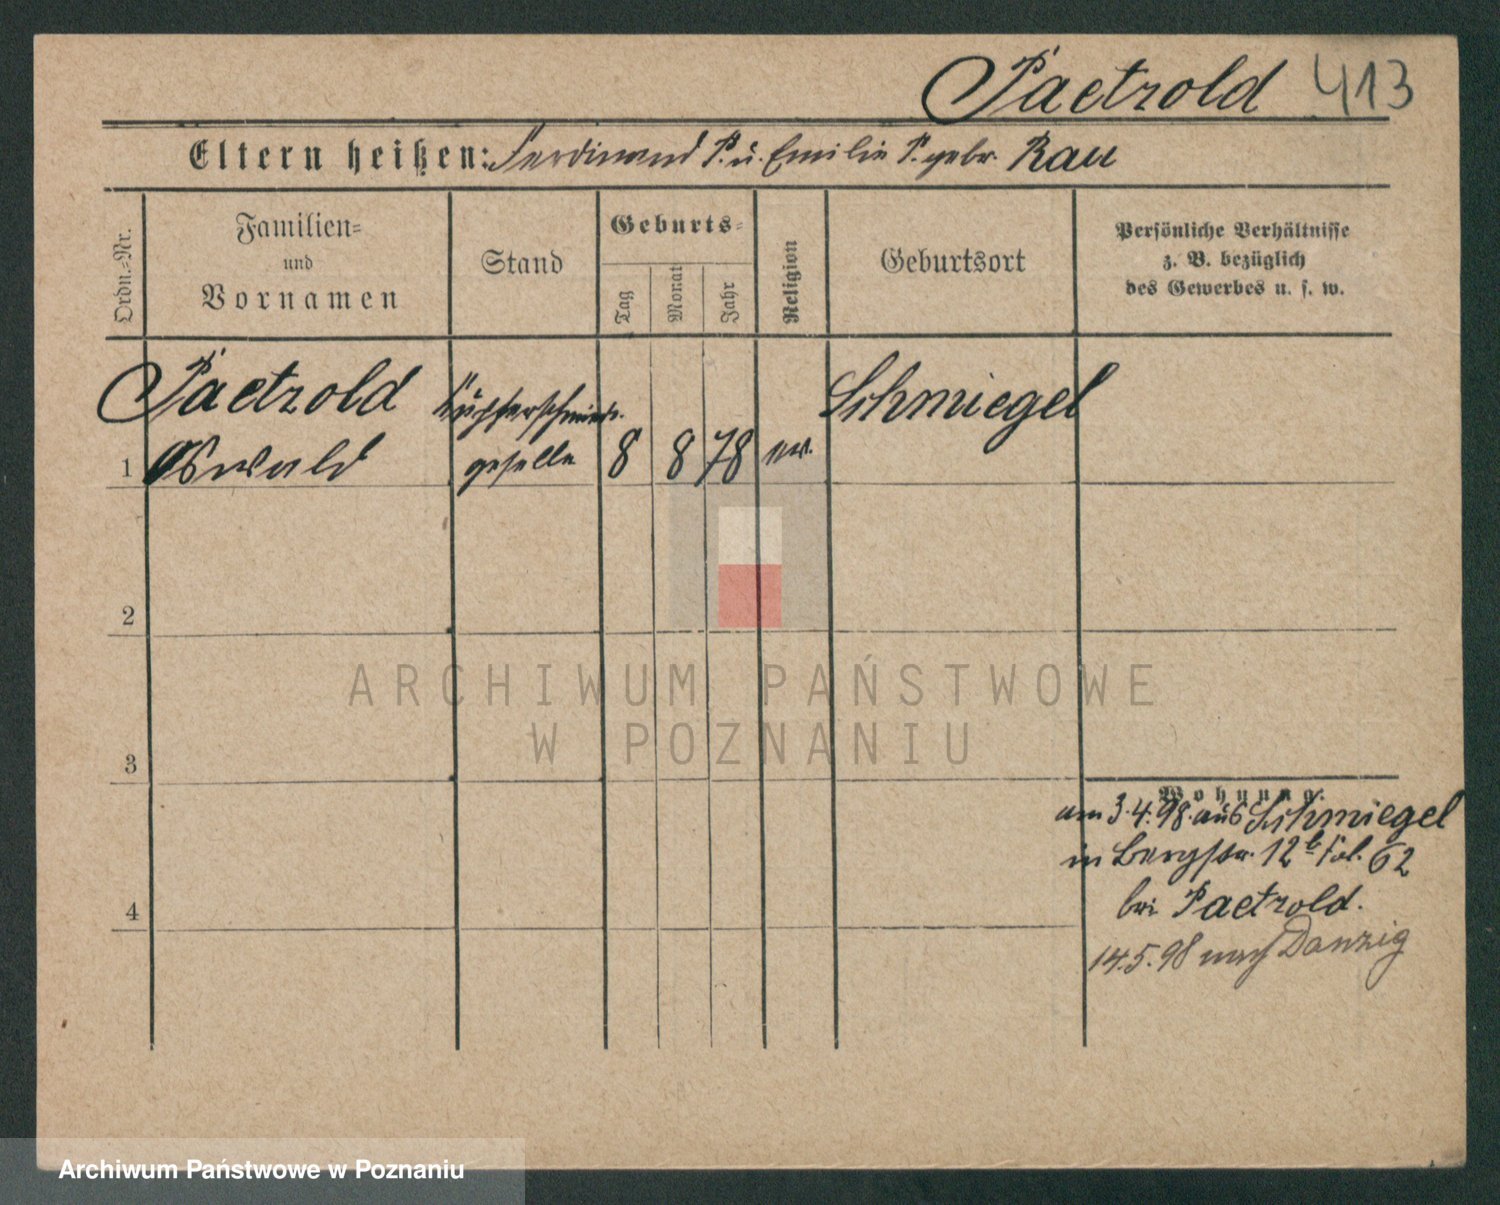 Paetzold 413
Eltern heißen: Ferdinand P. u. Emilie P. gebr. Rau
Ordn.-Nr.
Familien-
und
Vornamen
Stand
Geburts-
Tag
Monat
Jahr
Religion
Geburtsort
Persönliche Verhältnisse
z. B. bezüglich
des Gewerbes u. s. w.
Paetzold
Kupferschmiede-
Schmiegel
1 Oswald
geselle
8 8 78 ev.
2
3
4
ARCHIWUM PAŃSTWOWE
W POZNANIU
Wohnung.
am 3.4.98. aus Schmiegel
in Bergstr. 12b fol. 62
bei Paetzold.
14.5.98 nach Danzig
Archiwum Państwowe w Poznaniu